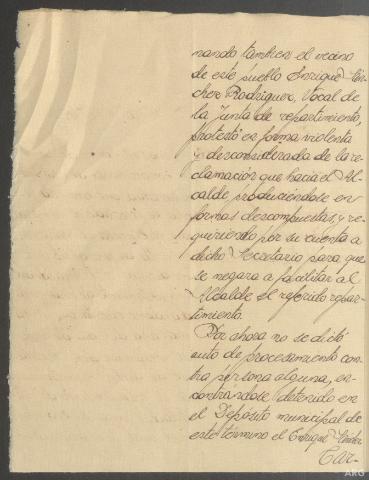 nando tambien el vecino
de este pueblo Enrique Sán-
chez Rodriguez, Vocal de
la Junta de repartimiento,
protestó en forma violenta
y desconsiderada de la re-
clamación que hacia el Al-
calde produciéndose en
formas descompuestas, y re-
quiriendo por su cuenta a
dicho Secretario para que
se negara a facilitar al
Alcalde el referido repar-
timiento.
Por ahora no se dictó
auto de procesamiento con-
tra persona alguna, en-
contrandose detenido en
el Depósito municipal de
este termino el Enrique
Car-
ARG